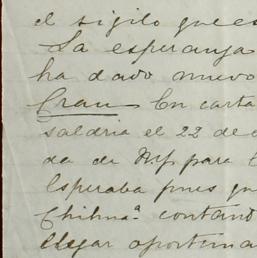 el sigilo que es
La esperanza
ha dado nuevo
Grau En carta
saldria el 22 de
da de N.Y. para
Esperaba pues que
Chihuª contand
llegar oportuna